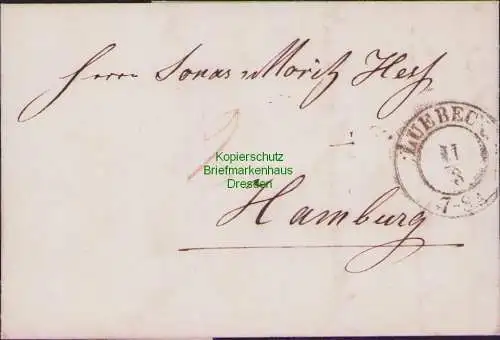 Herrn Jonas & Moritz Hess
LUEBECK
11
3
7-8 A
Kopierschutz
Briefmarkenhaus
Dresden
Hamburg